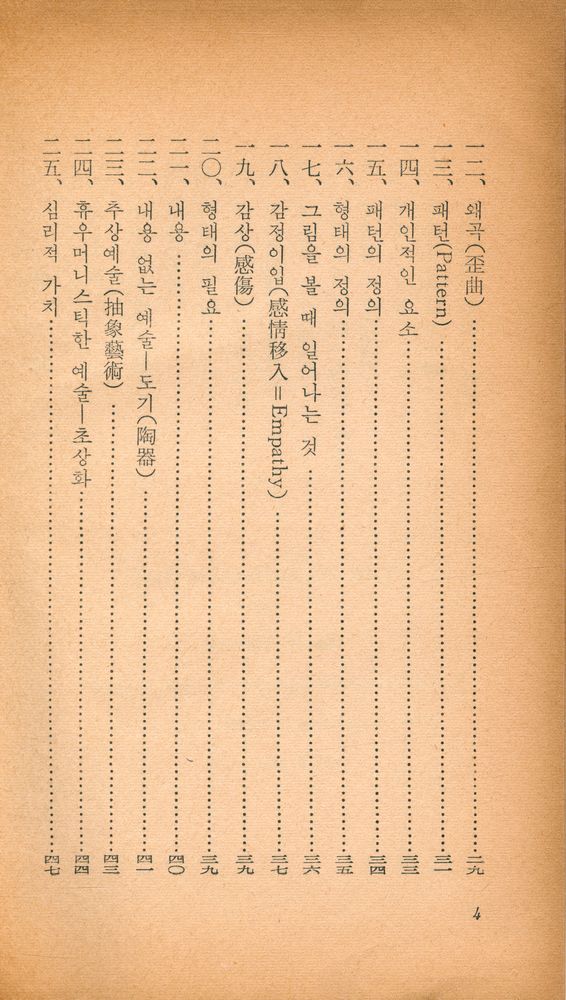 一二、 왜곡(歪曲)……二九
一三、 패턴(Pattern)……三一
一四、 개인적인 요소……三三
一五、 패턴의 정의……三四
一六、 형태의 정의……三五
一七、 그림을 볼 때 일어나는 것……三六
一八、 감정이입(感情移入=Empathy)……三七
一九、 감상(感傷)……三九
二〇、 형태의 필요……三九
二一、 내용……四〇
二二、 내용 없는 예술—도기(陶器)……四一
二三、 추상예술(抽象藝術)……四三
二四、 휴우머니스틱한 예술—초상화……四四
二五、 심리적 가치……四七
4